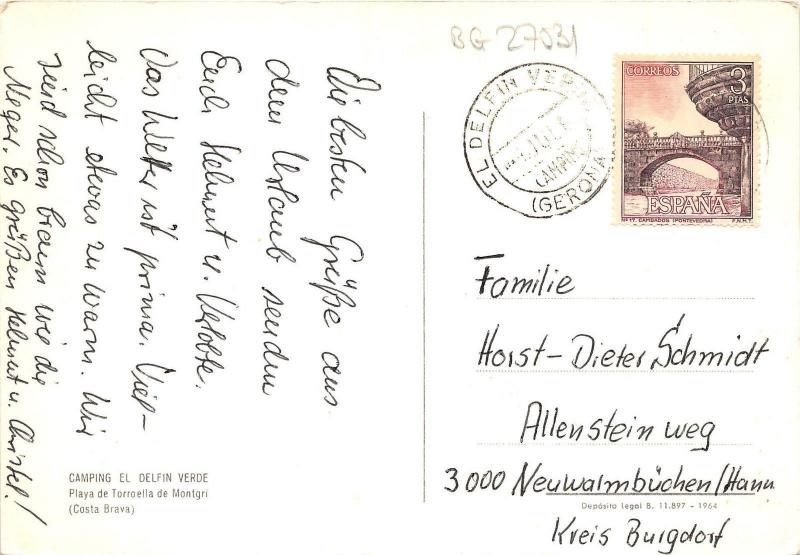 BG 27031
Die besten Grüße aus
dem Urlaub senden
Euch Helmut u. Verlobte.
Das Wetter ist prima. Viel-
leicht etwas zu warm. Wir
sind schon braun wie die
Neger. Es grüßen Helmut u. Christel!
CAMPING EL DELFIN VERDE
Playa de Torroella de Montgrí
(Costa Brava)
EL DELFIN VERDE
CAMPING
(GERONA)
CORREOS
3
PTAS
ESPAÑA
Nº 17. CAMBADOS (PONTEVEDRA) F.N.M.T.
Familie
Horst-Dieter Schmidt
Allenstein weg
3000 Neuwarmbüchen/Hann
Depósito Legal B. 11.897 - 1964
Kreis Burgdorf